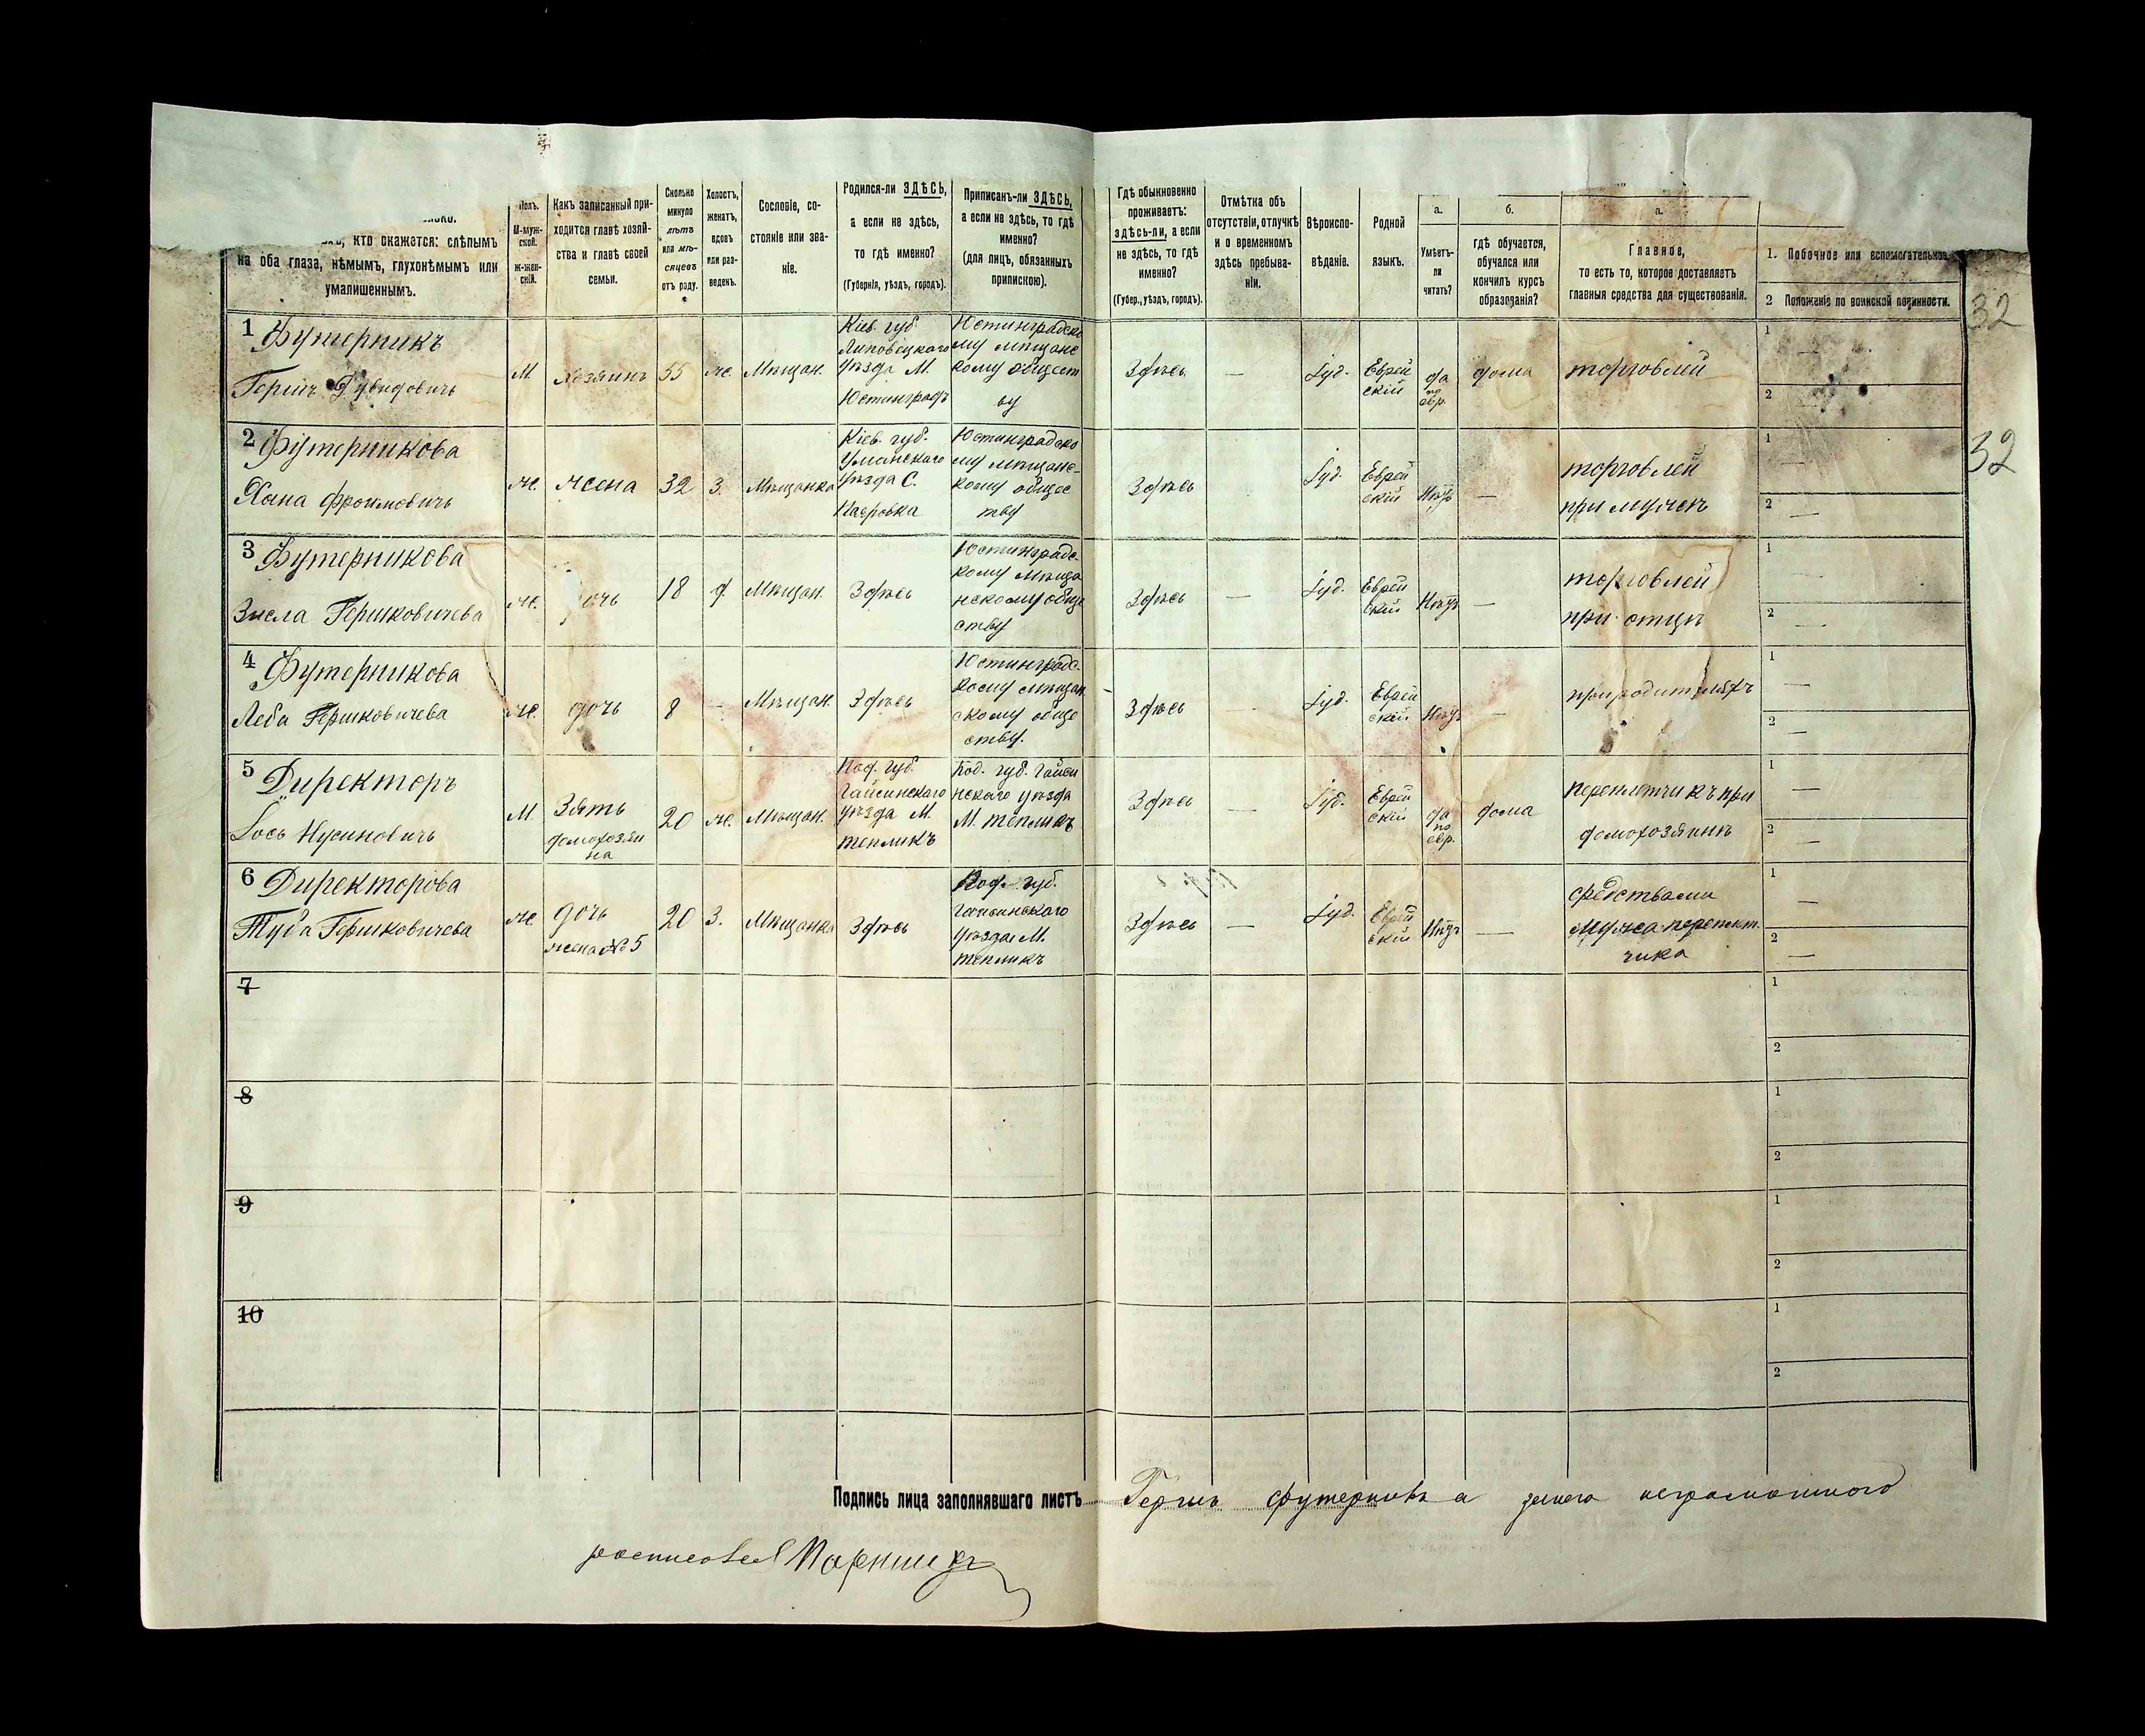 кто скажется: слѣпымъ
на оба глаза, нѣмымъ, глухонѣмымъ или
умалишеннымъ.
Полъ.
М-муж-
ской.
ж-жен-
скій.
Какъ записанный при-
ходится главѣ хозяй-
ства и главѣ своей
семьи.
Сколько
минуло
лѣтъ
или мѣ-
сяцевъ
отъ роду.
Холостъ,
женатъ,
вдовъ
или раз-
веденъ.
Сословіе, со-
стояніе или зва-
ніе.
Родился-ли ЗДѢСЬ,
а если не здѣсь,
то гдѣ именно?
(Губернія, уѣздъ, городъ).
Приписанъ-ли ЗДѢСЬ,
а если не здѣсь, то гдѣ
именно?
(для лицъ, обязанныхъ
припискою).
Гдѣ обыкновенно
проживаетъ:
здѣсь-ли, а если
не здѣсь, то гдѣ
именно?
(Губер., уѣздъ, городъ).
Отмѣтка объ
отсутствіи, отлучкѣ
и о временномъ
здѣсь пребыва-
ніи.
Вѣроиспо-
вѣданіе.
Родной
языкъ.
а.
Умѣетъ-
ли
читать?
б.
гдѣ обучается,
обучался или
кончилъ курсъ
образованія?
а.
Главное,
то есть то, которое доставляетъ
главныя средства для существованія.
1. Побочное или вспомогательное.
2 Положеніе по воинской повинности.
32
1 Футерникъ
Гершъ Дувидовичъ
М.
Хозяинъ
55
же.
Мѣщан.
Кіев. губ
Липовецкаго
уѣзда М.
Юстинградъ
Юстинградско
му мѣщанс
кому общест
ву
Здѣсь
—
Іуд.
Еврей
скій
да
по
евр.
дома
торговлей
1 —
2 —
32
2 Футерникова
Хана Фроимовичъ
же.
жена
32
З.
Мѣщанка
Кіев. губ.
Уманскаго
уѣзда С.
Юстинградско
му мѣщанс-
кому общес
тву
Здѣсь
Іуд.
Еврей
скій
Нѣтъ
—
торговлей
при мужѣ
1 —
2 —
3 Футерникова
Зисла Гершковичева
же.
очь
18
д.
Мѣщан.
Здѣсь
Юстинградс-
кому мѣща
нскому обще
ству
Здѣсь
—
Іуд.
Еврей
скій
Нѣтъ
—
торговлей
при отцѣ
1 —
2 —
4 Футерникова
Леба Гершковичева
же.
дочь
8
—
Мѣщан.
Здѣсь
Юстинградс-
кому мѣщан
скому обще
ству.
Здѣсь
Іуд.
Еврей
скій
Нѣтъ
—
при родителяхъ
1 —
2 —
5 Директоръ
Іось Нусиновичъ
М.
Зять
домохозяи
на
20
же.
Мѣщан.
Под. губ.
Гайсинскаго
уѣзда М.
тепликъ
Под. губ. Гайси
нскаго уѣзда
М. тепликъ
Здѣсь
—
Іуд.
Еврей
скій
да
по
евр.
дома
переплетчикъ при
домохозяинѣ
1 —
2 —
6 Директорова
Туба Гершковичева
же.
дочь
жена № 5
20
З.
Мѣщанка
Здѣсь
Под. губ.
Гайсинскаго
уѣзда М.
тепликъ
Здѣсь
—
Іуд.
Еврей
скій
Нѣтъ
—
средствами
мужа переплет.
чика
1 —
2 —
7
1
2
8
1
2
9
1
2
10
1
2
Подпись лица заполнявшаго листъ Гершъ Футерникъ а за него неграмотного
росписовался